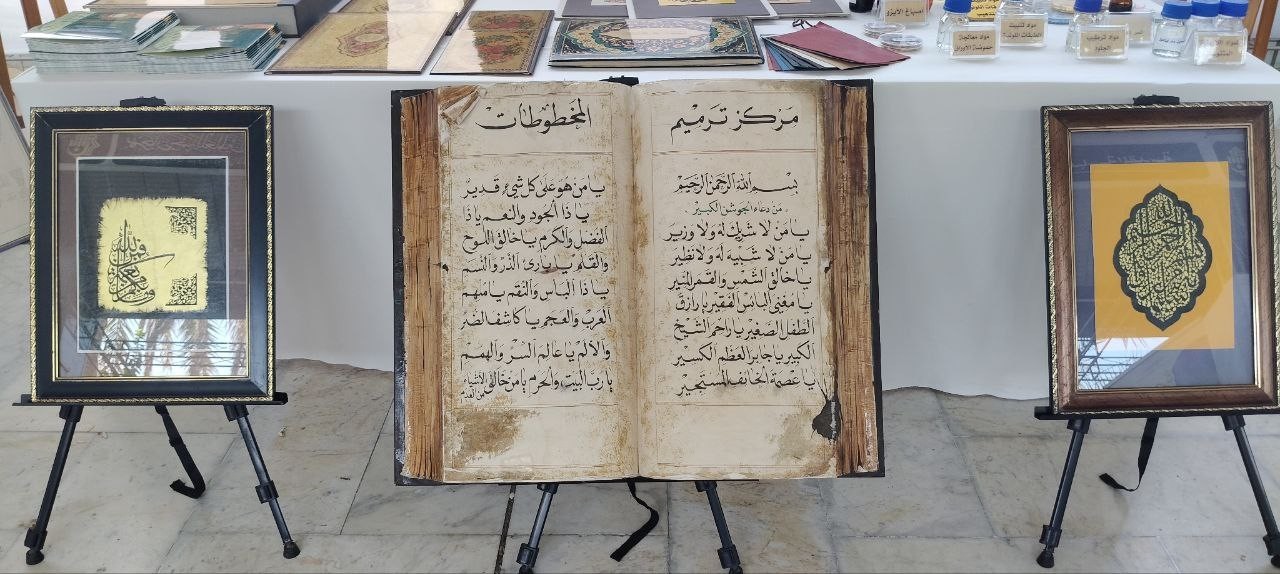 مركز ترميم
بسم الله الرحمن الرحيم
من دعاء الجوشن الكبير
يا من لا شريك له ولا وزير
يا من لا شبيه له ولا نظير
يا خالق الشمس والقمر المنير
يا مغني البائس الفقير يا رازق
الطفل الصغير يا راحم الشيخ
الكبير يا جابر العظم الكسير
يا عصمة الخائف المستجير
المخطوطات
يا من هو على كل شيء قدير
يا ذا الجود والنعم يا ذا
الفضل والكرم يا خالق اللوح
والقلم يا بارئ الذر والنسم
يا ذا البأس والنقم يا ملهم
العرب والعجم يا كاشف الضر
والألم يا عالم السر والهمم
يا رب البيت والحرم يا من خلق الأشياء
من العدم
أصباغ الأليزو
مواد معالجة
حموضة الأوراق
مواد تثبيت
مواد ترطيب
الجلود